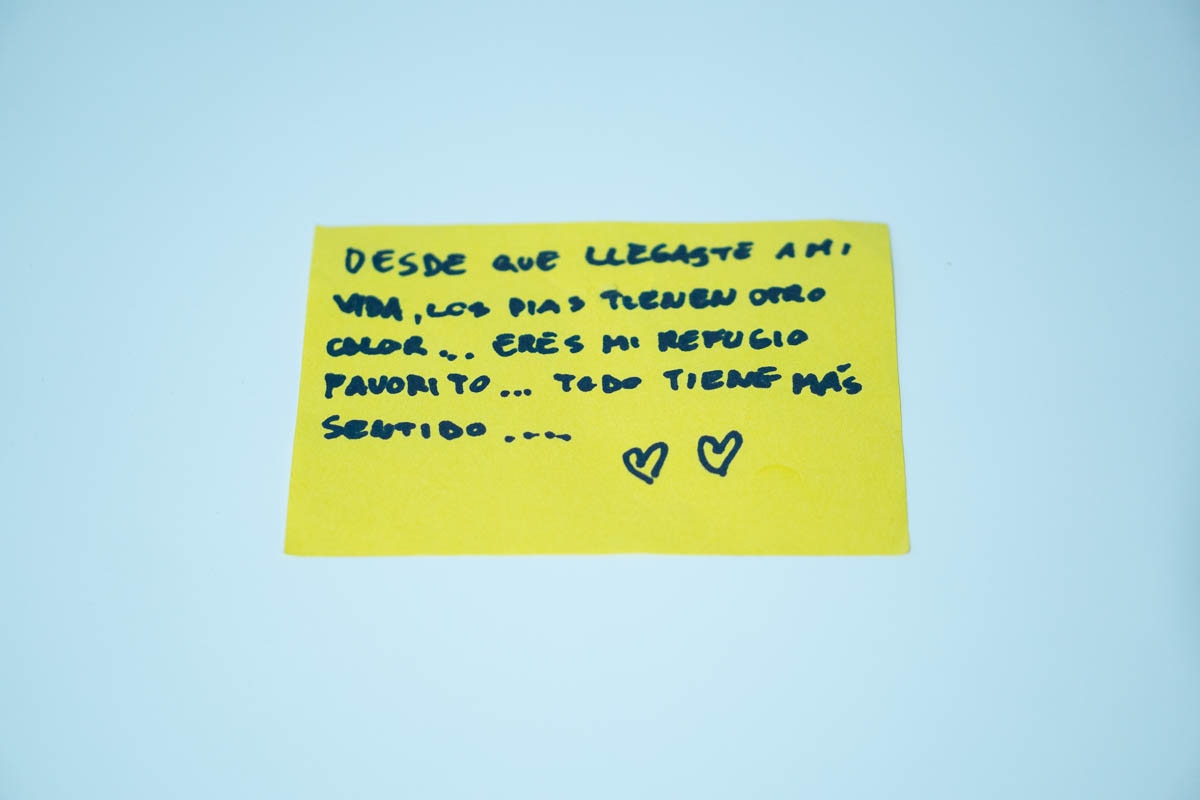 DESDE QUE LLEGASTE A MI
VIDA, LOS DIAS TIENEN OTRO
COLOR... ERES MI REFUGIO
FAVORITO... TODO TIENE MÁS
SENTIDO ....